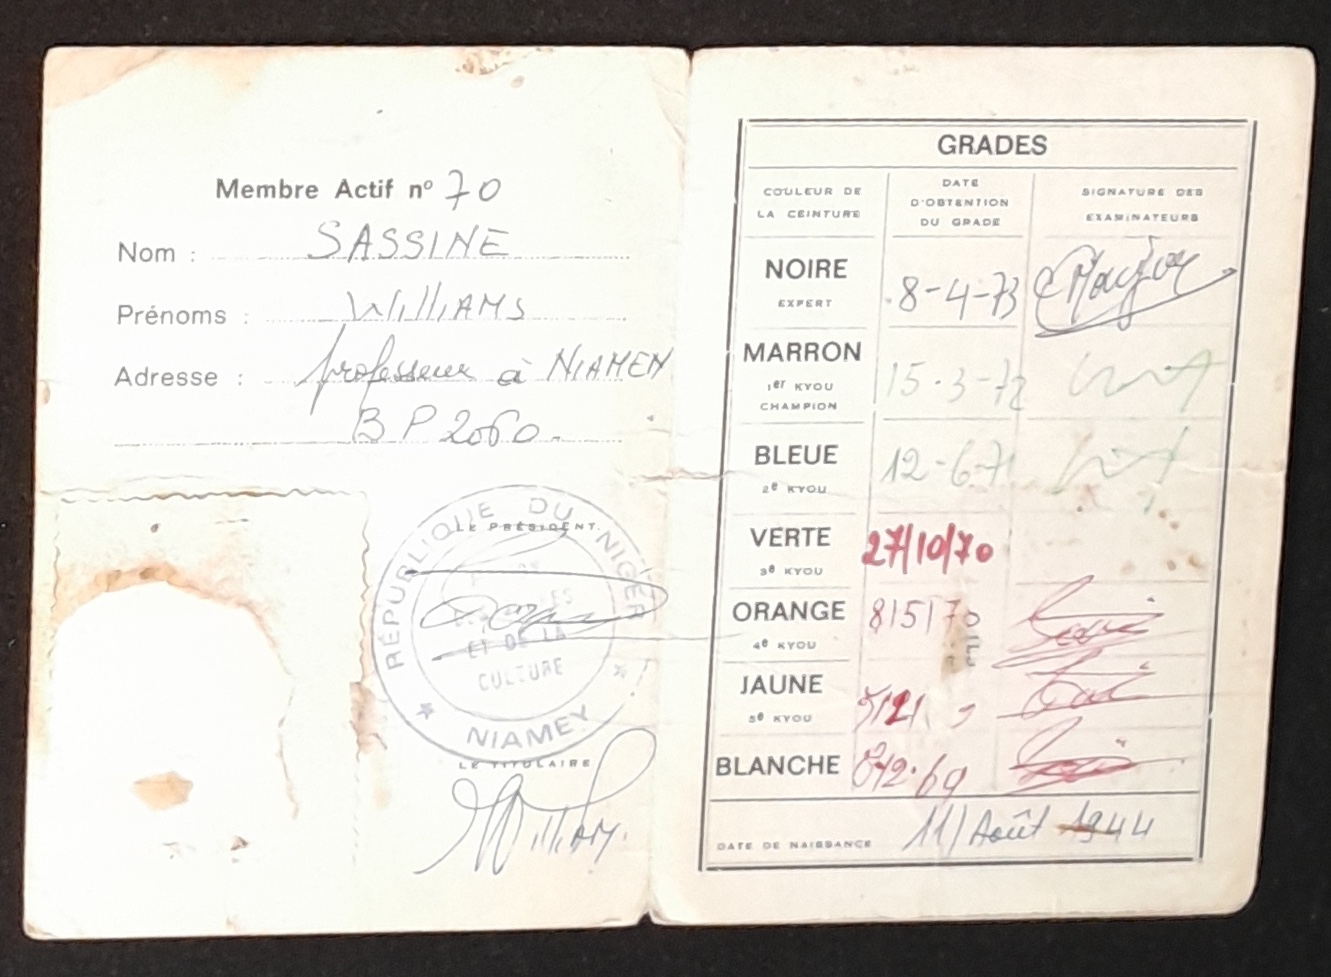 Membre Actif nº 70
Nom : SASSINE
Prénoms : WilliAMS
Adresse : professeur à NIAMEN
BP 2060.
RÉPUBLIQUE DU NIGER
LE PRÉSIDENT.
ET DE LA
CULTURE
NIAMEY
LE TITULAIRE
William.
GRADES
COULEUR DE LA CEINTURE
DATE D'OBTENTION DU GRADE
SIGNATURE DES EXAMINATEURS
NOIRE 8-4-73
EXPERT
MARRON 15-3-72
1er KYOU
CHAMPION
BLEUE 12-6-71
2e KYOU
VERTE 27/10/70
3e KYOU
ORANGE 8/5/70
4e KYOU
JAUNE
5e KYOU
BLANCHE
DATE DE NAISSANCE 11/Août 1944